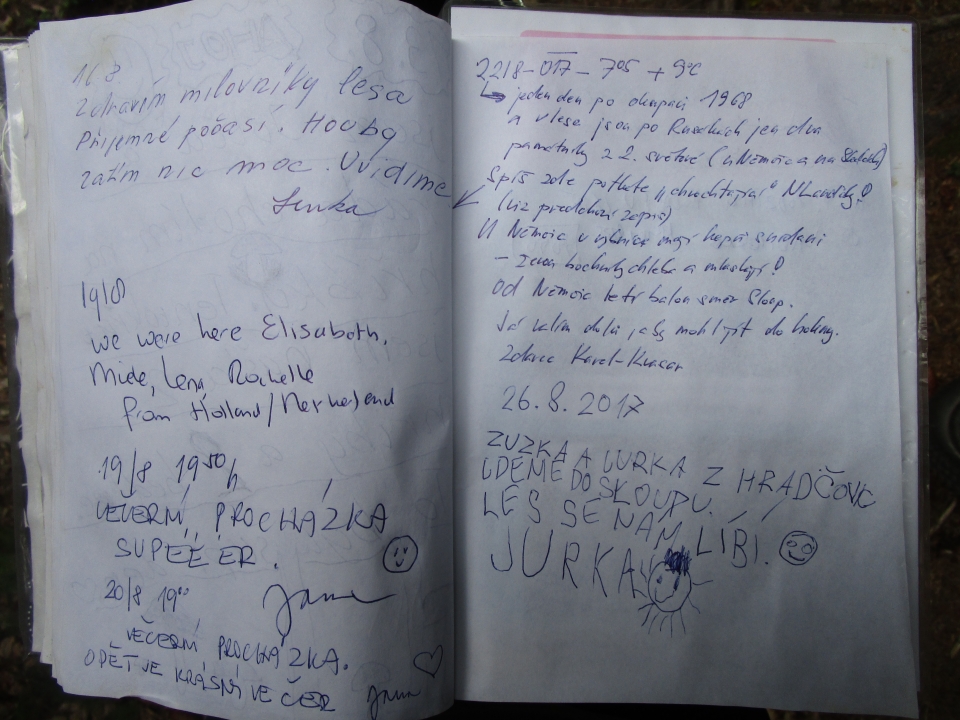 16 8
Zdravím milovníky lesa
Příjemné počasí. Houby
zatím nic moc. Uvidíme
Lenka
19/8
We were here Elisabeth,
Miele, Lena, Rochelle
from Holland/Netherland
19/8 19⁵⁰h
VEČERNÍ PROCHÁZKA
SUPÉÉÉR.
20/8 19⁰⁰
Jana
VEČERNÍ PROCHÁZKA.
OPĚT JE KRÁSNÝ VEČER Jana
2218-017-7⁰⁵ +9°C
jeden den po okupaci 1968
a v lese jsou po Rusech jen dva
památníky z 2. světové (u Němce a na
Spíš zde potkáte „chrochtající“
(viz předchozí zápis)
U Němce v mají kopré snídani
- chleba a
Od Němce letí balon směr Sloup.
Já valím dolů, abych mohl jít do
Zdraví Karel-
26.8.2017
ZUZKA A JURKA Z HRADČOVIC
JDEME DO SLOUPU.
LES SE NÁM LÍBÍ.
JURKA